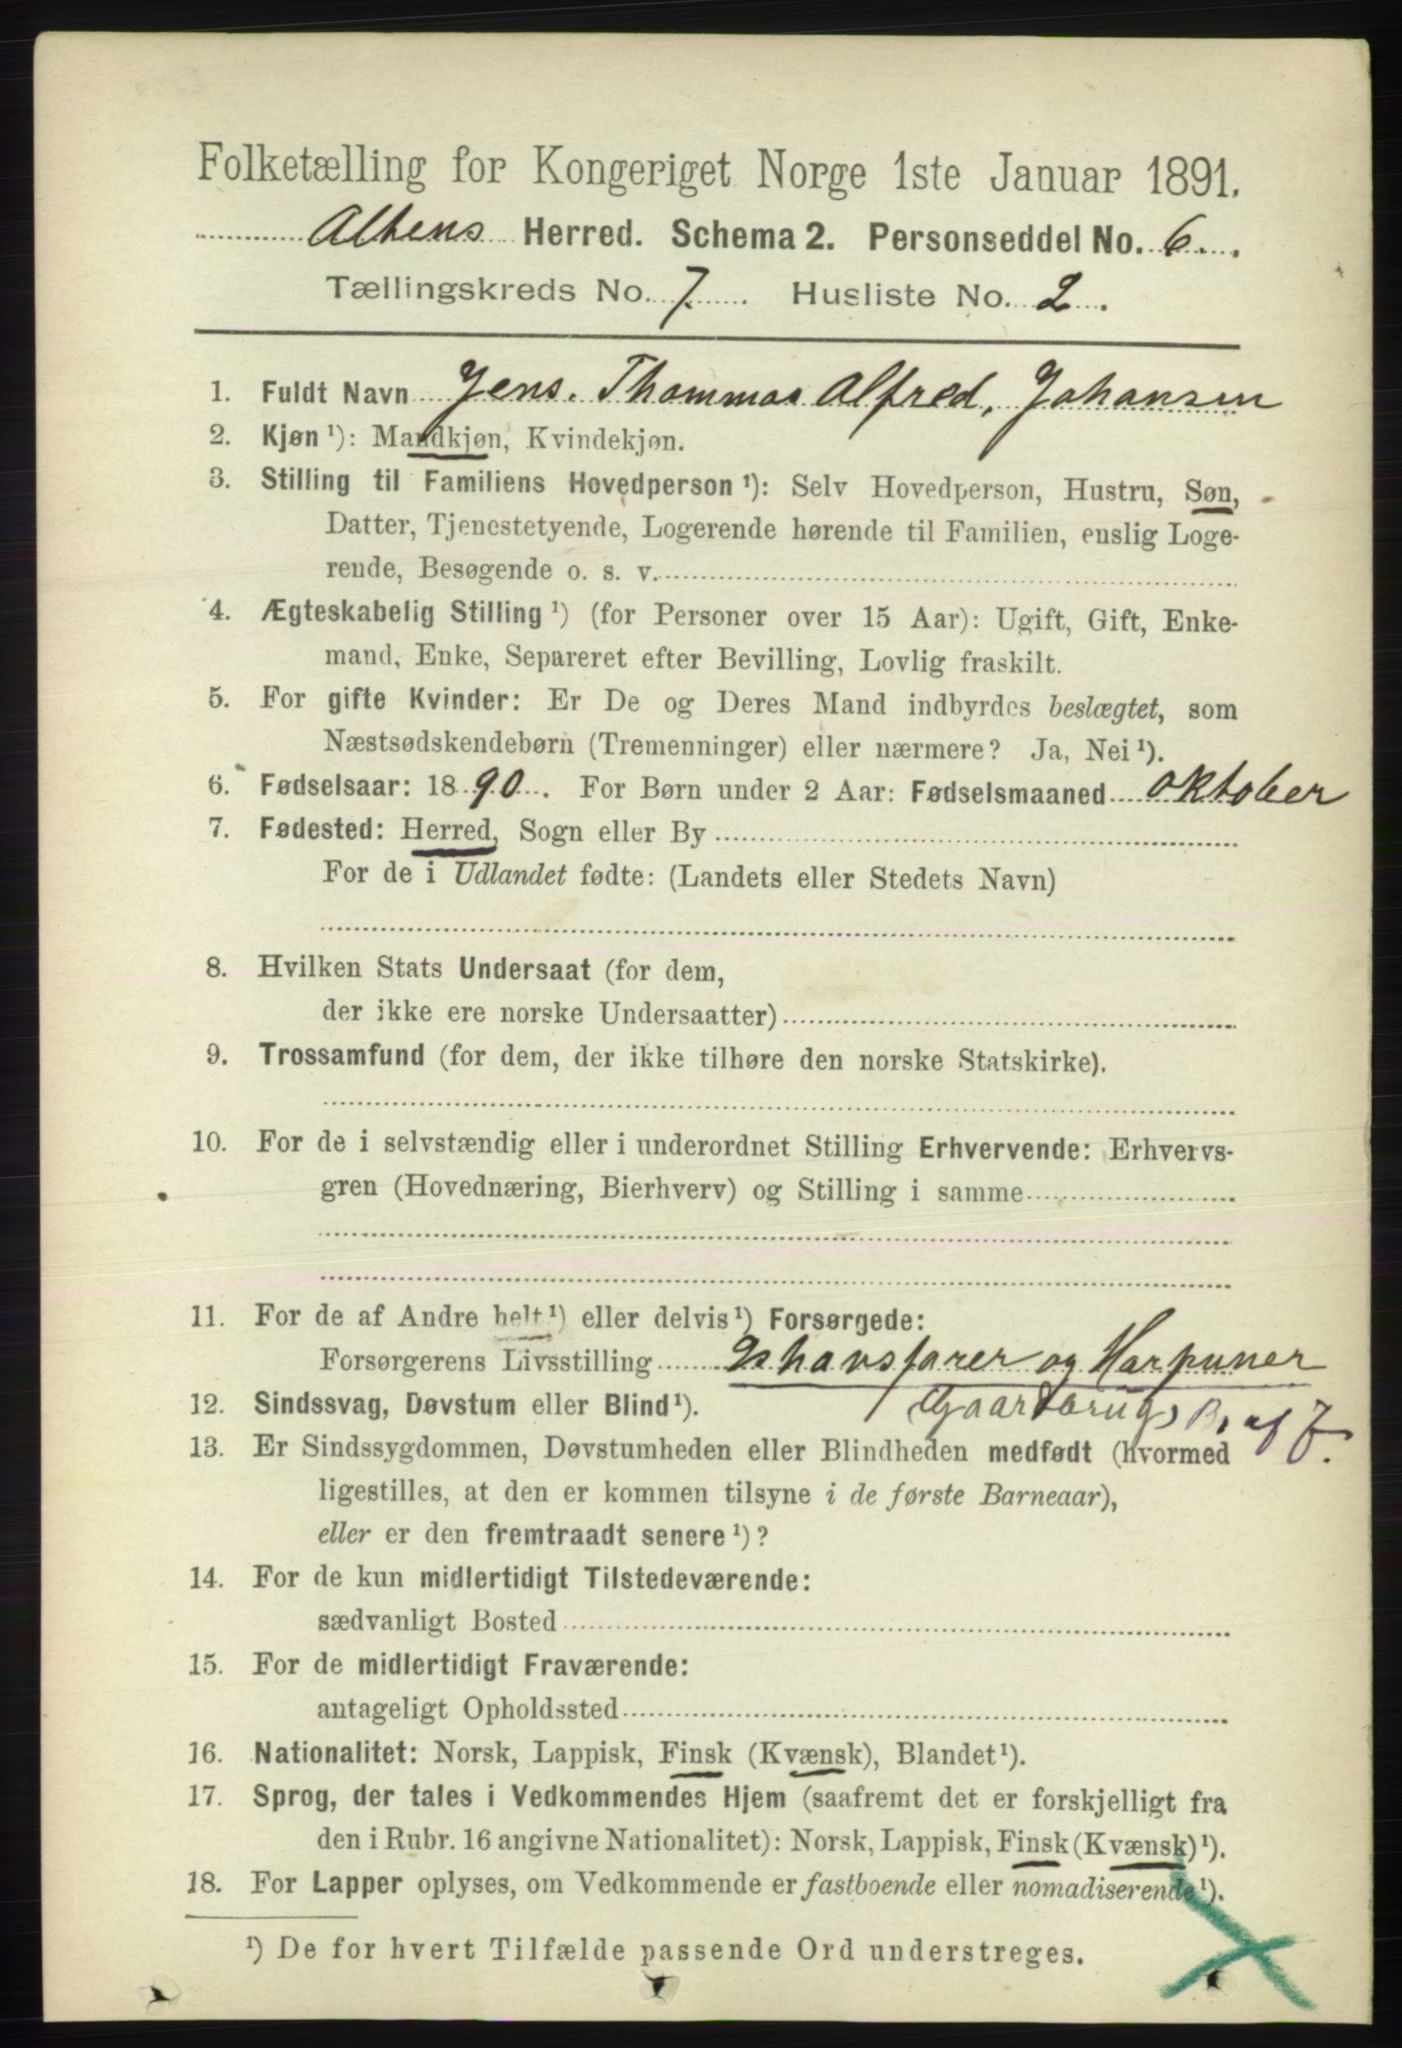 Folketælling for Kongeriget Norge 1ste Januar 1891.
Altens Herred. Schema 2. Personseddel No. 6.
Tællingskreds No. 7. Husliste No. 2.
1. Fuldt Navn Jens. Thommas Alfred, Johansen
2. Kjøn¹): Mandkjøn, Kvindekjøn.
3. Stilling til Familiens Hovedperson¹): Selv Hovedperson, Hustru, Søn,
Datter, Tjenestetyende, Logerende hørende til Familien, enslig Loge-
rende, Besøgende o. s. v.
4. Ægteskabelig Stilling¹) (for Personer over 15 Aar): Ugift, Gift, Enke-
mand, Enke, Separeret efter Bevilling, Lovlig fraskilt.
5. For gifte Kvinder: Er De og Deres Mand indbyrdes beslægtet, som
Næstsødskendebørn (Tremenninger) eller nærmere? Ja, Nei¹).
6. Fødselsaar: 1890. For Børn under 2 Aar: Fødselsmaaned oktober
7. Fødested: Herred, Sogn eller By
For de i Udlandet fødte: (Landets eller Stedets Navn)
8. Hvilken Stats Undersaat (for dem,
der ikke ere norske Undersaatter)
9. Trossamfund (for dem, der ikke tilhøre den norske Statskirke).
10. For de i selvstændig eller i underordnet Stilling Erhvervende: Erhvervs-
gren (Hovednæring, Bierhverv) og Stilling i samme
11. For de af Andre helt¹) eller delvis¹) Forsørgede:
Forsørgerens Livsstilling Ishavsfarer og Harpuner
12. Sindssvag, Døvstum eller Blind¹). (Gaardbrug, B, af J.
13. Er Sindssygdommen, Døvstumheden eller Blindheden medfødt (hvormed
ligestilles, at den er kommen tilsyne i de første Barneaar),
eller er den fremtraadt senere¹)?
14. For de kun midlertidigt Tilstedeværende:
sædvanligt Bosted
15. For de midlertidigt Fraværende:
antageligt Opholdssted
16. Nationalitet: Norsk, Lappisk, Finsk (Kvænsk), Blandet¹).
17. Sprog, der tales i Vedkommendes Hjem (saafremt det er forskjelligt fra
den i Rubr. 16 angivne Nationalitet): Norsk, Lappisk, Finsk (Kvænsk)¹).
18. For Lapper oplyses, om Vedkommende er fastboende eller nomadiserende¹).
¹) De for hvert Tilfælde passende Ord understreges.